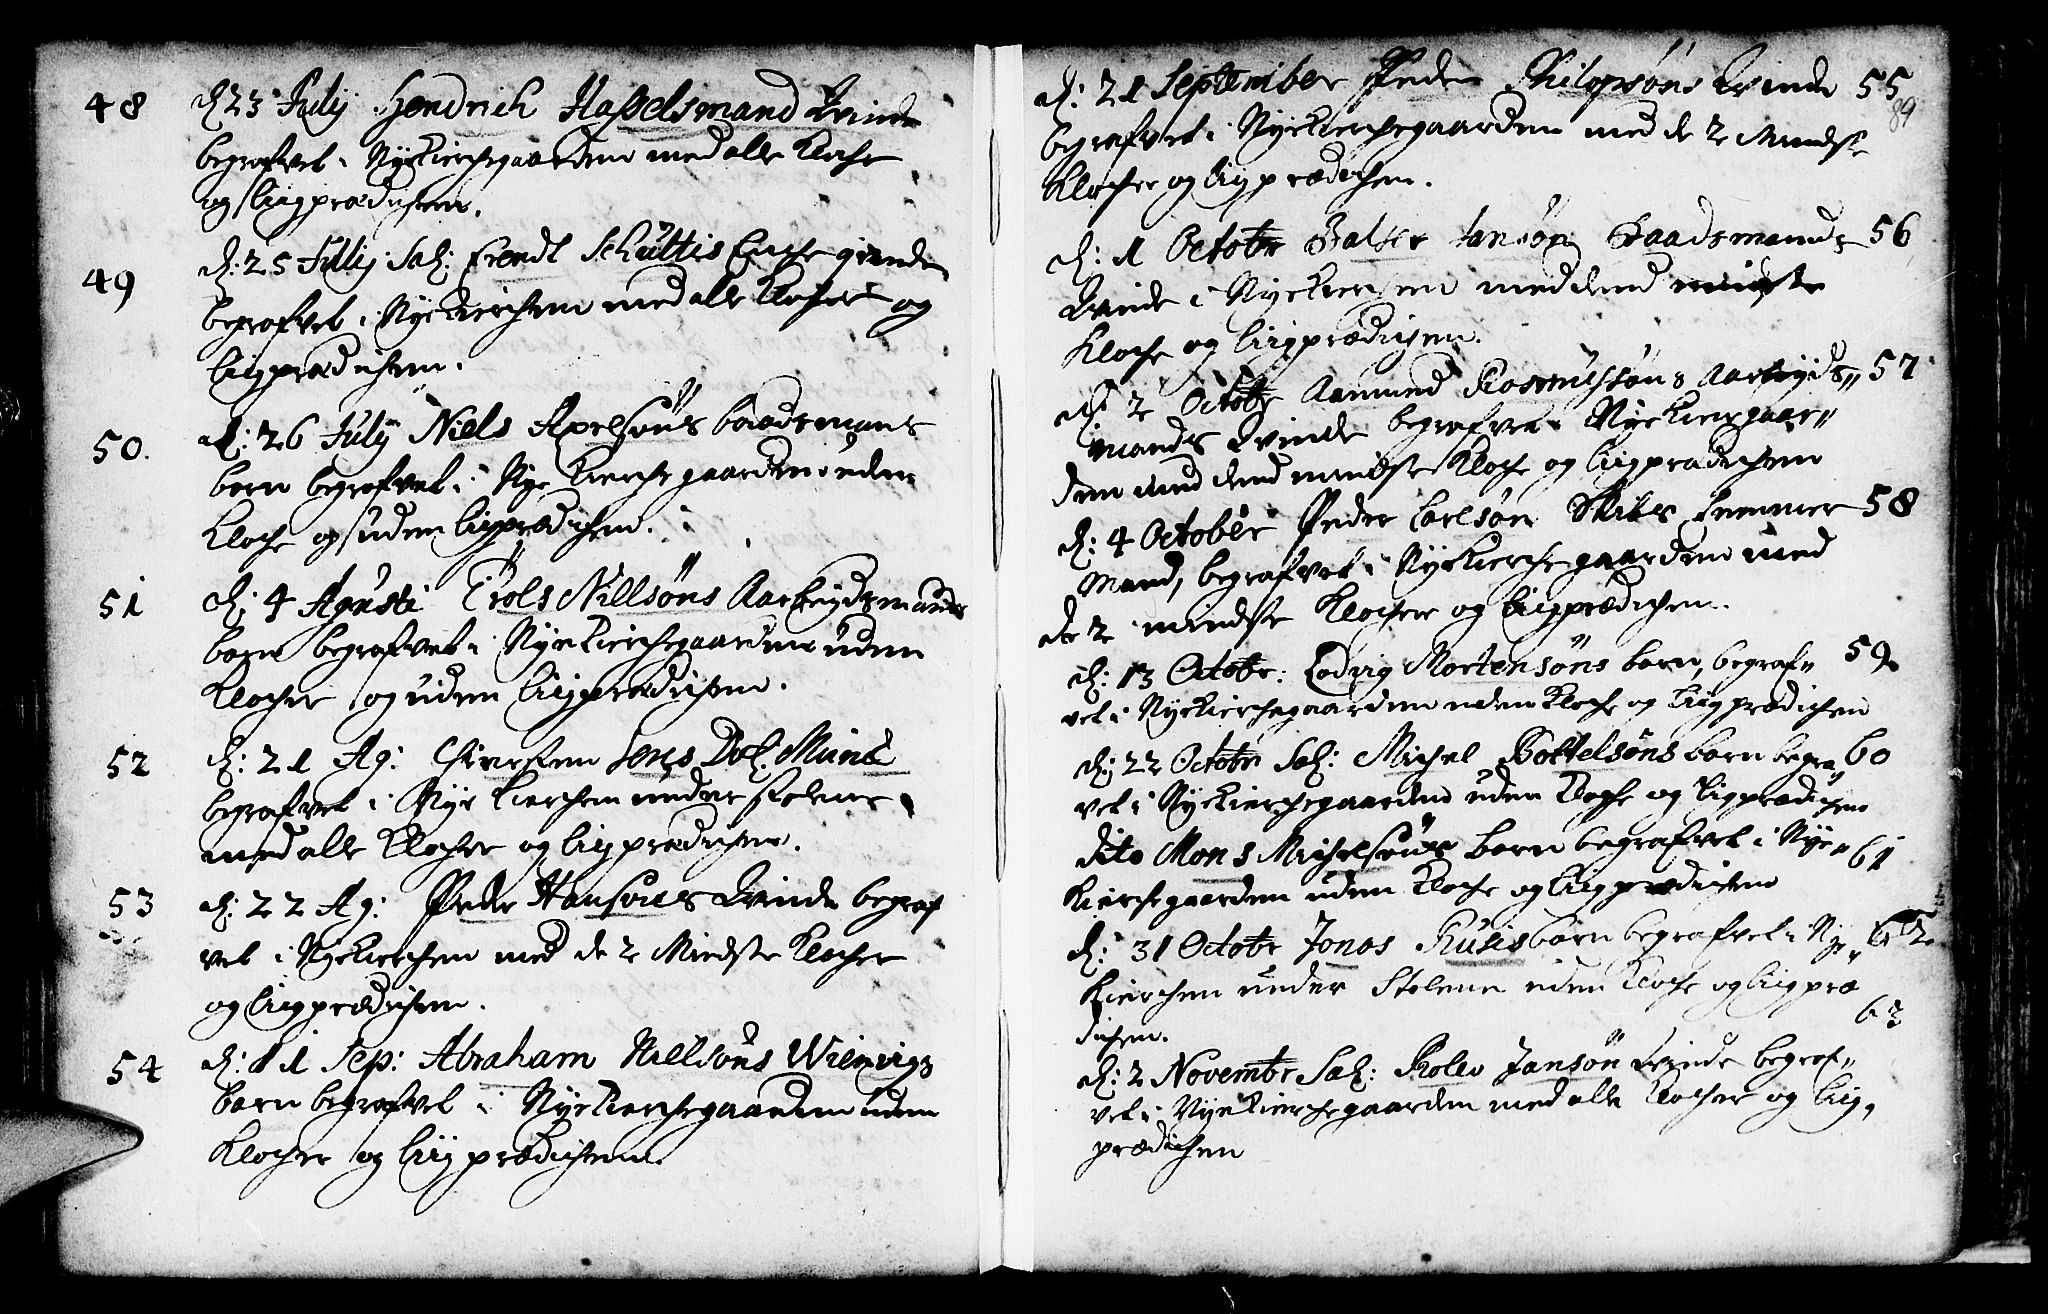 48 d: 23 Julij Hendrich Hasselsmand Qvinde
begrafvet i Nyekierchegaarden med alle Klocher
og Liigprædichen.
49 d: 25 Julij Sal: Erendt Schultis Enche
begrafvet i Nyekierchen med alle Klocher og
Liigprædichen.
50. d: 26 Julij Niels Axelsøns baadsmans
barn begrafvet i Nye Kierchegaarden uden
Kloche og uden Liigprædichen.
51 d: 4 Agusti Trols Nillsøns Aarbeydsmands
barn begrafvet i Nyekierchegaarden uden
Klocher og uden Liigprædichen.
52 d: 21 Ag: Chirsten Jens Munc
begrafvet i Nye Kierchen under stolene
med alle Klocher og Liigprædichen.
53 d: 22 Ag: Peder Hansøns Qvinde begraf
vet i Nyekierchen med de 2 Mindste Klocher
og Liigprædichen.
54 d: 11 Sep: Abraham Nillsøns
barn begrafvet i Nyekierchegaarden uden
Klocher og Liigprædichen.
d: 21 September Peder Philopsøns Qvinde 55
89
begrafvet i Nyekierchegaarden med de 2 Mindste
Klocher og Liigprædichen.
d: 1 Octobr Jansøn Baadsmands 56
Qvinde i Nyekierchen med dend mindste
Kloche og Liigprædichen.
d: 2 Octobr Aamund Rasmussøns Aarbeyds„ 57
mands Qvinde begrafvet i Nyekiergaar„
den med dend mindste Kloche og Liigprædichen
d: 4 October Peder Carlsøn Skibs Temmer 58
Mand, begrafvet i Nyekierchegaarden med
de 2 mindste Klocher og Liigprædichen.
d: 13 Octobr: Lodvig Mortensøns barn, begraf„ 59.
vet i Nyekierchegaarden uden Kloche og Liigprædichen
d: 22 Octobr Sal: Michel Bottelsøns barn begraf„ 60
vet i Nyekierchegaarden uden Kloche og Liigprædichen
dito Mons Michelsøns barn begrafvet i Nye„ 61
Kierchegaarden uden Kloche og Liigprædichen
d: 31 Octobr Jonas barn begrafvet i Nye„ 62
Kierchen under Stolene uden Kloche og Liigpræ
dichen.
63
d: 2 Novembr Sal: Rolev Jansøn Qvinde begraf„
vet i Nyekierchegaarden med alle Klocher og Liig„
prædichen